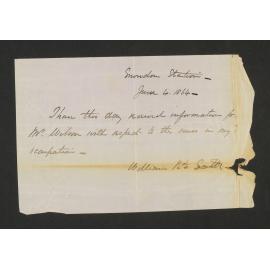 Station -
June 4. 1864 -
I have this day received information from
Mr. Wilson with respect to the mines in my
occupation -
William Scott